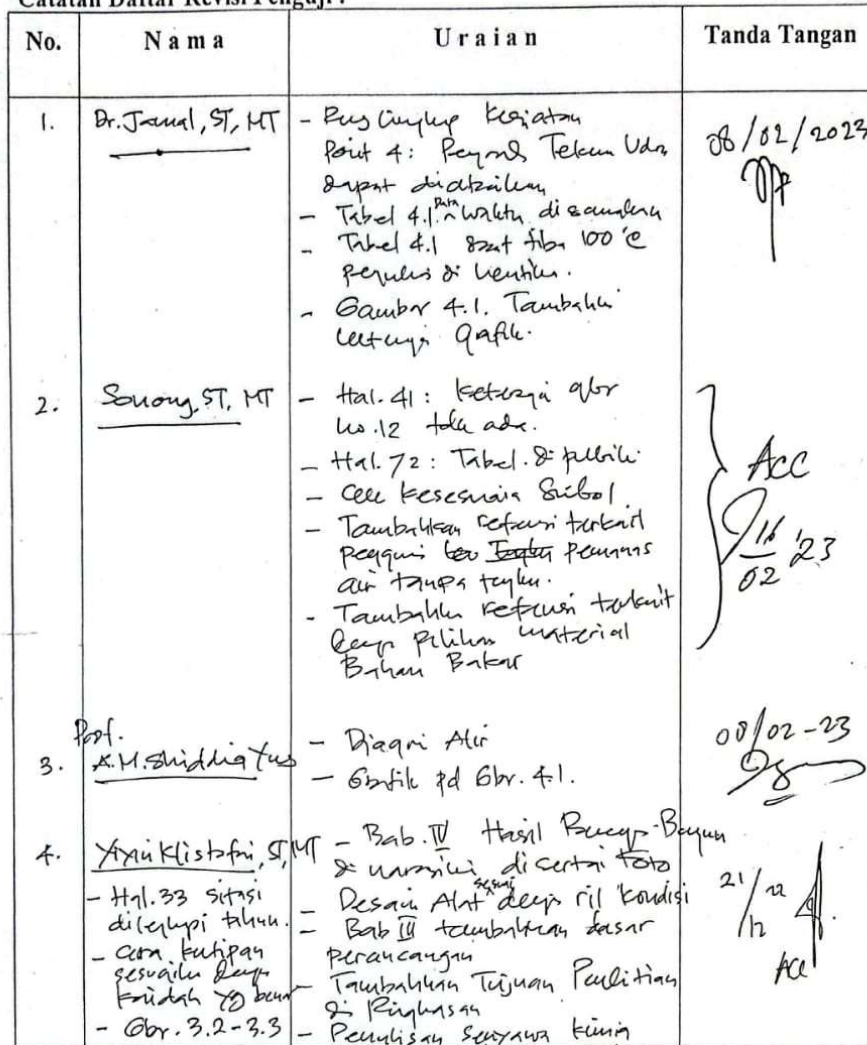 Catatan Daftar Revisi Penguji :
No. Nama Uraian Tanda Tangan
1. Dr. Jamal, ST, MT
- Ruang Lingkup Kegiatan
Point 4: Tekan Udara
dapat
- Tabel 4.1 Data Waktu disamakan
- Tabel 4.1 saat tiba 100°C
penulis di
- Gambar 4.1. Tambahkan
Grafik.
08/02/2023
2. Sonong, ST, MT
- Hal. 41: gbr
no. 12 tdk ada.
- Hal. 72: Tabel.
- Cek kesesuaian Simbol
- Tambahkan referensi terkait
pemanas
air tanpa tungku.
- Tambahkan referensi terkait
dengan pilihan material
Bahan Bakar
Acc
16/02 '23
3. Prof. A.M. Shiddiq Yunus
- Diagram Alir
- Grafik pd Gbr. 4.1.
08/02-23
4. ST, MT
- Hal. 33 sitasi
dilengkapi tahun.
- Cara kutipan
sesuaikan dengan
kaidah yg benar
- Gbr. 3.2-3.3
- Bab. IV Hasil Rancang-Bangun
di narasikan disertai Foto
- Desain Alat sesuai dengan ril kondisi
= Bab III tambahkan dasar
perancangan
- Tambahkan Tujuan Penelitian
di Ringkasan
- Penulisan senyawa kimia
21/12 22
Acc